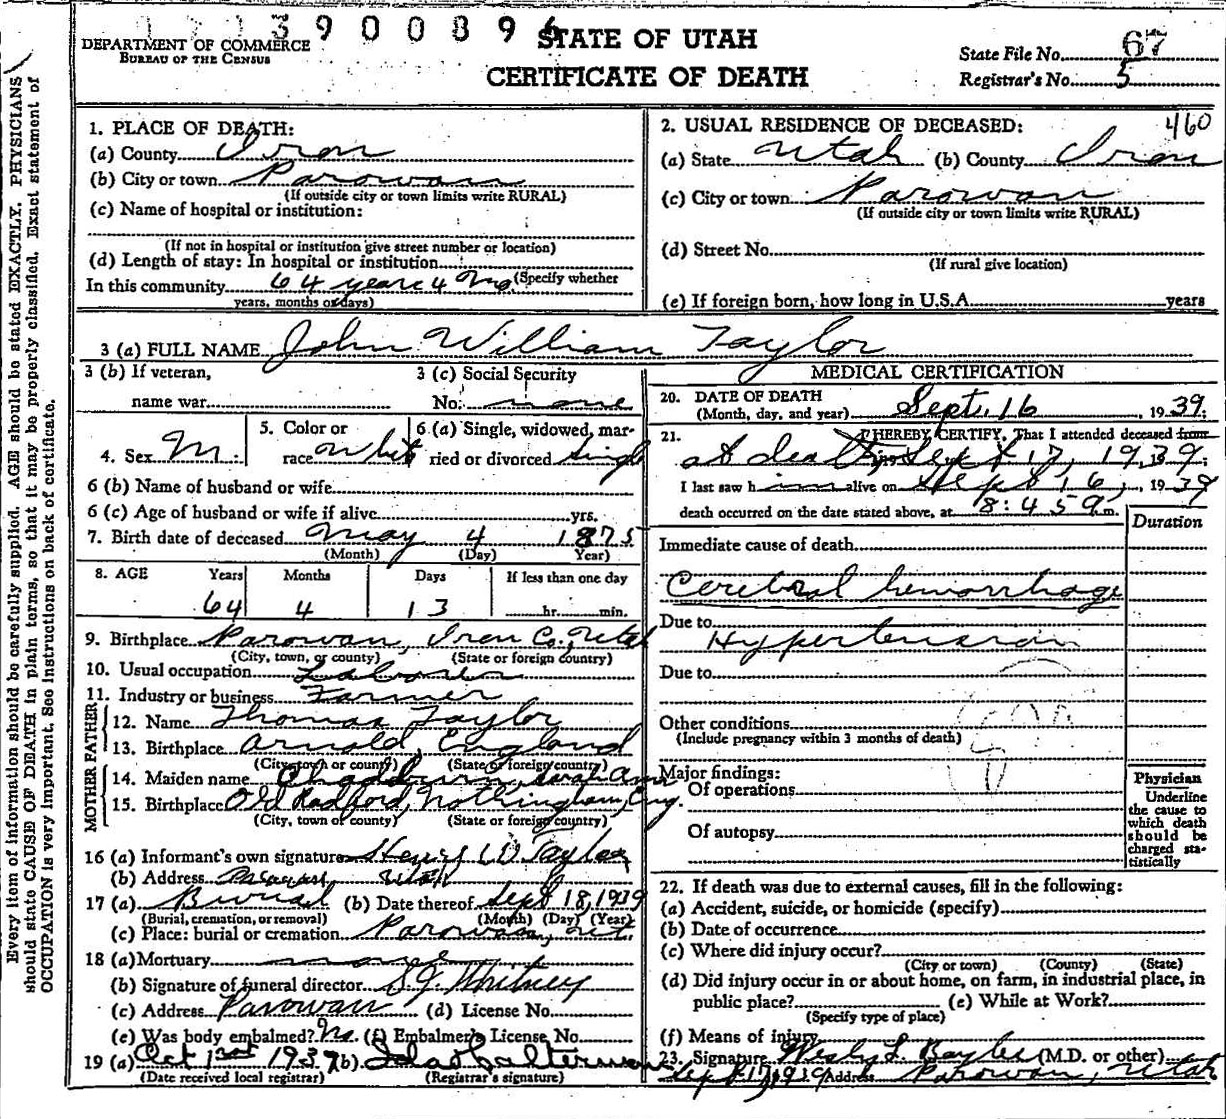 3900896
DEPARTMENT OF COMMERCE
BUREAU OF THE CENSUS
STATE OF UTAH
CERTIFICATE OF DEATH
State File No. 67
Registrar's No. 5
Every item of information should be carefully supplied. AGE should be stated EXACTLY. PHYSICIANS
should state CAUSE OF DEATH in plain terms, so that it may be properly classified. Exact statement of
OCCUPATION is very important. See instructions on back of certificate.
1. PLACE OF DEATH:
(a) County Iron
(b) City or town Parowan
(If outside city or town limits write RURAL)
(c) Name of hospital or institution:
(If not in hospital or institution give street number or location)
(d) Length of stay: In hospital or institution
(Specify whether
In this community 64 years 4 Mo.
years, months or days)
2. USUAL RESIDENCE OF DECEASED: 460
(a) State Utah (b) County Iron
(c) City or town Parowan
(If outside city or town limits write RURAL)
(d) Street No.
(If rural give location)
(e) If foreign born, how long in U.S.A. years
3 (a) FULL NAME John William Taylor
3 (b) If veteran,
name war
3 (c) Social Security
No. none
4. Sex M.
5. Color or
race White
6 (a) Single, widowed, mar-
ried or divorced Single
6 (b) Name of husband or wife
6 (c) Age of husband or wife if alive yrs.
7. Birth date of deceased May 4 1875
(Month) (Day) Year)
8. AGE Years Months Days If less than one day
64 4 13 hr. min.
9. Birthplace Parowan, Iron Co., Utah
(City, town, or county) (State or foreign country)
10. Usual occupation Laborer
11. Industry or business Farmer
FATHER
12. Name Thomas Taylor
13. Birthplace Arnold, England
(City, town or county) (State or foreign country)
MOTHER
14. Maiden name Chadburn, Sarah Ann
15. Birthplace Old Radford, Nothingham, Eng.
(City, town or county) (State or foreign country)
16 (a) Informant's own signature Henry W Taylor
(b) Address Utah
17 (a) Burial (b) Date thereof Sept 18, 1939
(Burial, cremation, or removal) (Month) (Day) (Year)
(c) Place: burial or cremation Parowan, Ut.
18 (a) Mortuary none
(b) Signature of funeral director S.J. Whitney
(c) Address Parowan (d) License No.
(e) Was body embalmed? No. (f) Embalmer's License No.
19 (a) Oct 1939 (b)
(Date received local registrar) (Registrar's signature)
MEDICAL CERTIFICATION
20. DATE OF DEATH
(Month, day, and year) Sept. 16, 1939.
21. I HEREBY CERTIFY, That I attended deceased from
at death Sept 17, 1939.
I last saw him alive on Sept 16, 1939
death occurred on the date stated above, at 8:45 a.m.
Duration
Immediate cause of death
Cerebral hemorrhage
Due to
Hypertension
Due to
Other conditions
(Include pregnancy within 3 months of death)
Major findings:
Of operations
Of autopsy
Physician
Underline
the cause to
which death
should be
charged sta-
tistically
22. If death was due to external causes, fill in the following:
(a) Accident, suicide, or homicide (specify)
(b) Date of occurrence
(c) Where did injury occur?
(City or town) (County) (State)
(d) Did injury occur in or about home, on farm, in industrial place, in
public place? (e) While at Work?
(Specify type of place)
(f) Means of injury
23. Signature Wesly L. Bayles (M.D. or other)
Sept 17, 1939 Address Parowan, Utah